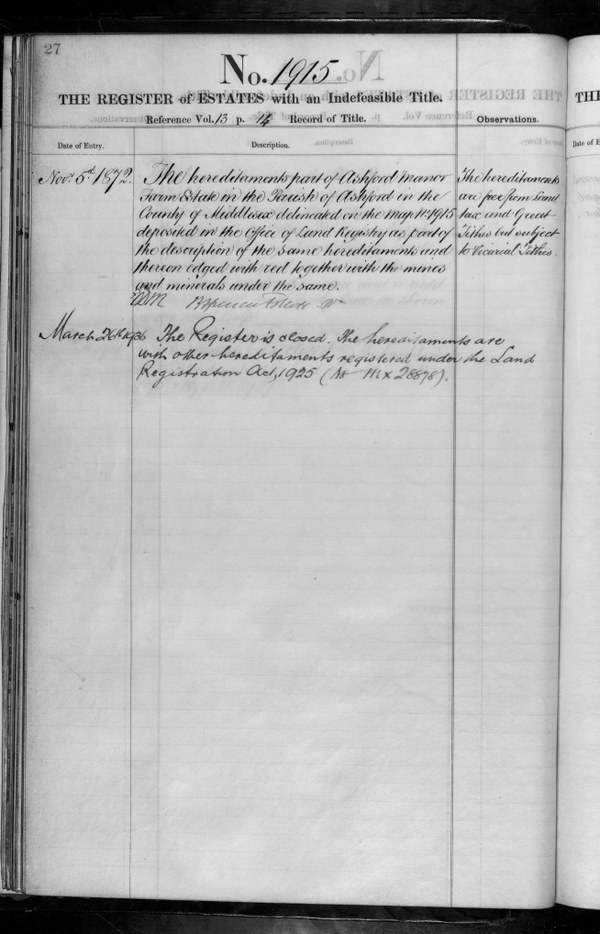 27
No. 1915
THE REGISTER of ESTATES with an Indefeasible Title.
Reference Vol. 13 p. 14 Record of Title.
Observations.
Date of Entry.
Description.
Novr 5th 1872.
The hereditaments part of Ashford Manor
Farm Estate in the Parish of Ashford in the
County of Middlesex delineated on the map No 1915
deposited in the Office of Land Registry as part of
the description of the same hereditaments and
thereon edged with red together with the mines
and minerals under the same.
The hereditaments
are free from Land
tax and Great
Tithes but subject
to Vicarial Tithes.
March 26th 1936 The Register is closed. The hereditaments are
with other hereditaments registered under the Land
Registration Act, 1925 (No Mx 28878).
THE
Date of E